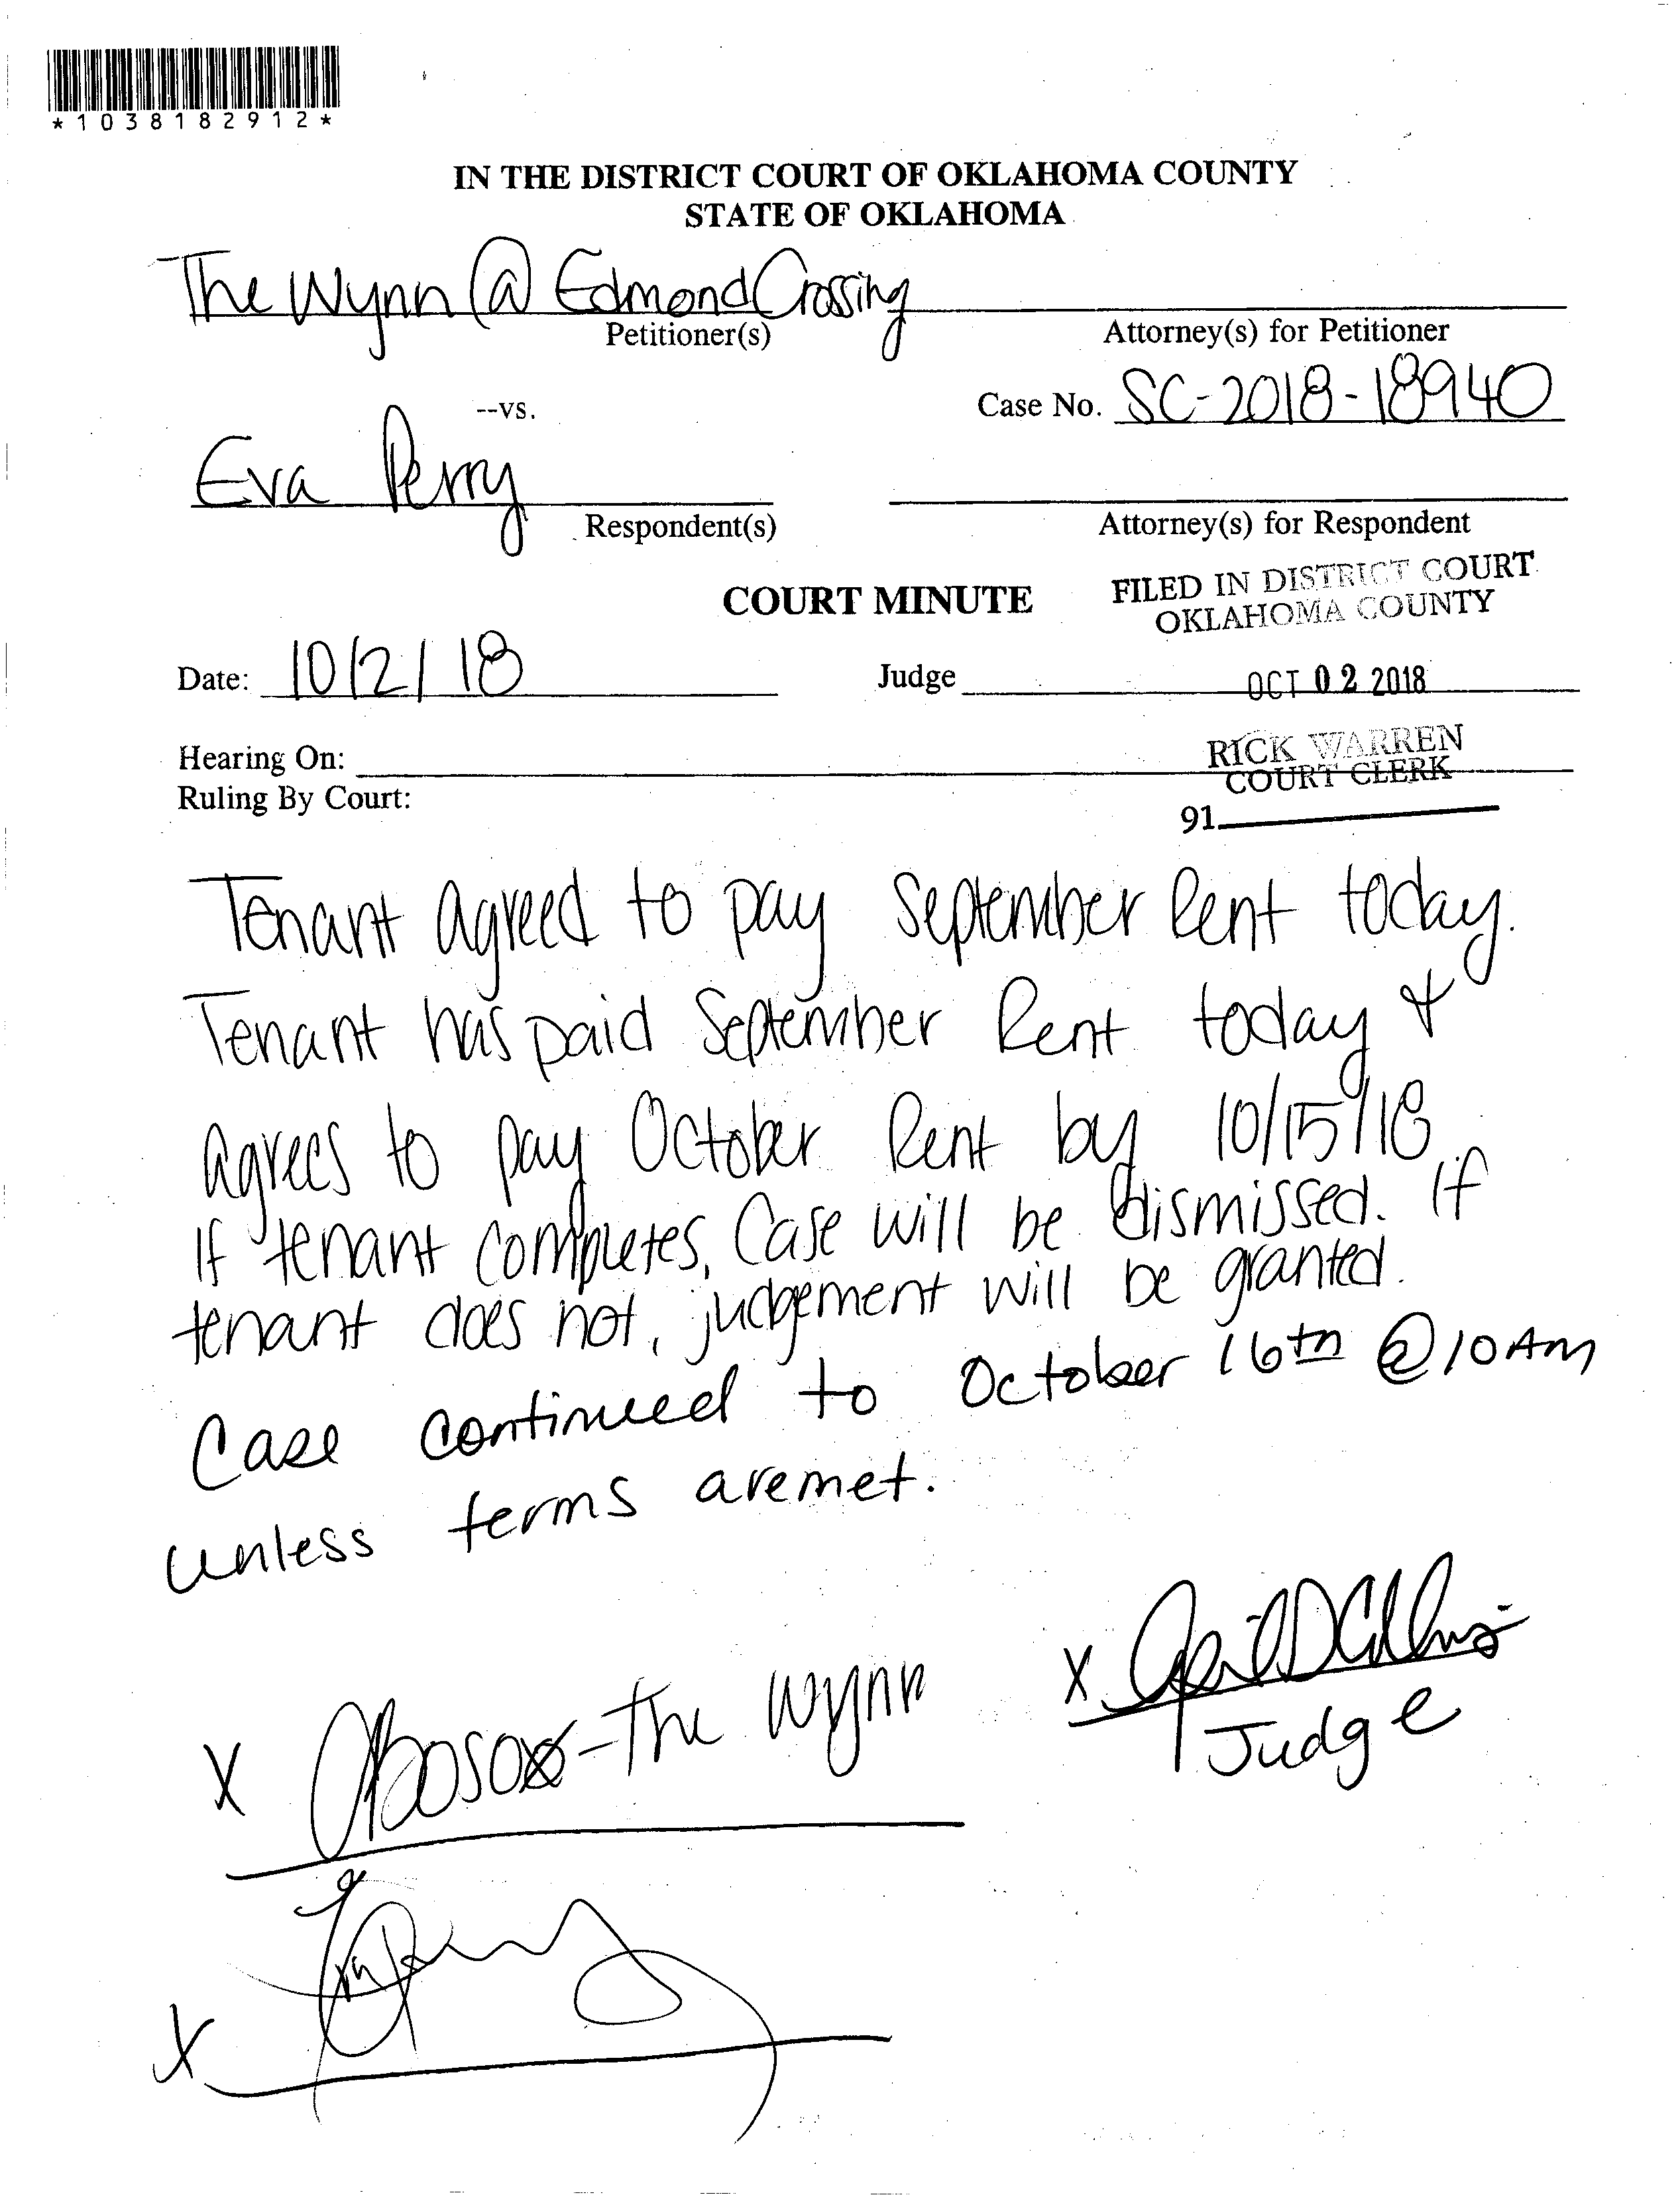 *1038182912*
IN THE DISTRICT COURT OF OKLAHOMA COUNTY
STATE OF OKLAHOMA
The Wynn @ Edmond Crossing
Petitioner(s)
Attorney(s) for Petitioner
--vs.
Case No. SC-2018-18940
Eva Perry
Respondent(s)
Attorney(s) for Respondent
COURT MINUTE
FILED IN DISTRICT COURT
OKLAHOMA COUNTY
Date: 10/2/18
Judge
OCT 02 2018
Hearing On:
RICK WARREN
COURT CLERK
Ruling By Court:
91
Tenant agreed to pay September Rent today.
Tenant has paid September Rent today &
agrees to pay October Rent by 10/15/18.
If tenant completes, Case will be dismissed. If
tenant does not, judgement will be granted.
Case continued to October 16th @ 10 AM
unless terms are met.
X April D Collins
Judge
X - The Wynn
X Eva Perry